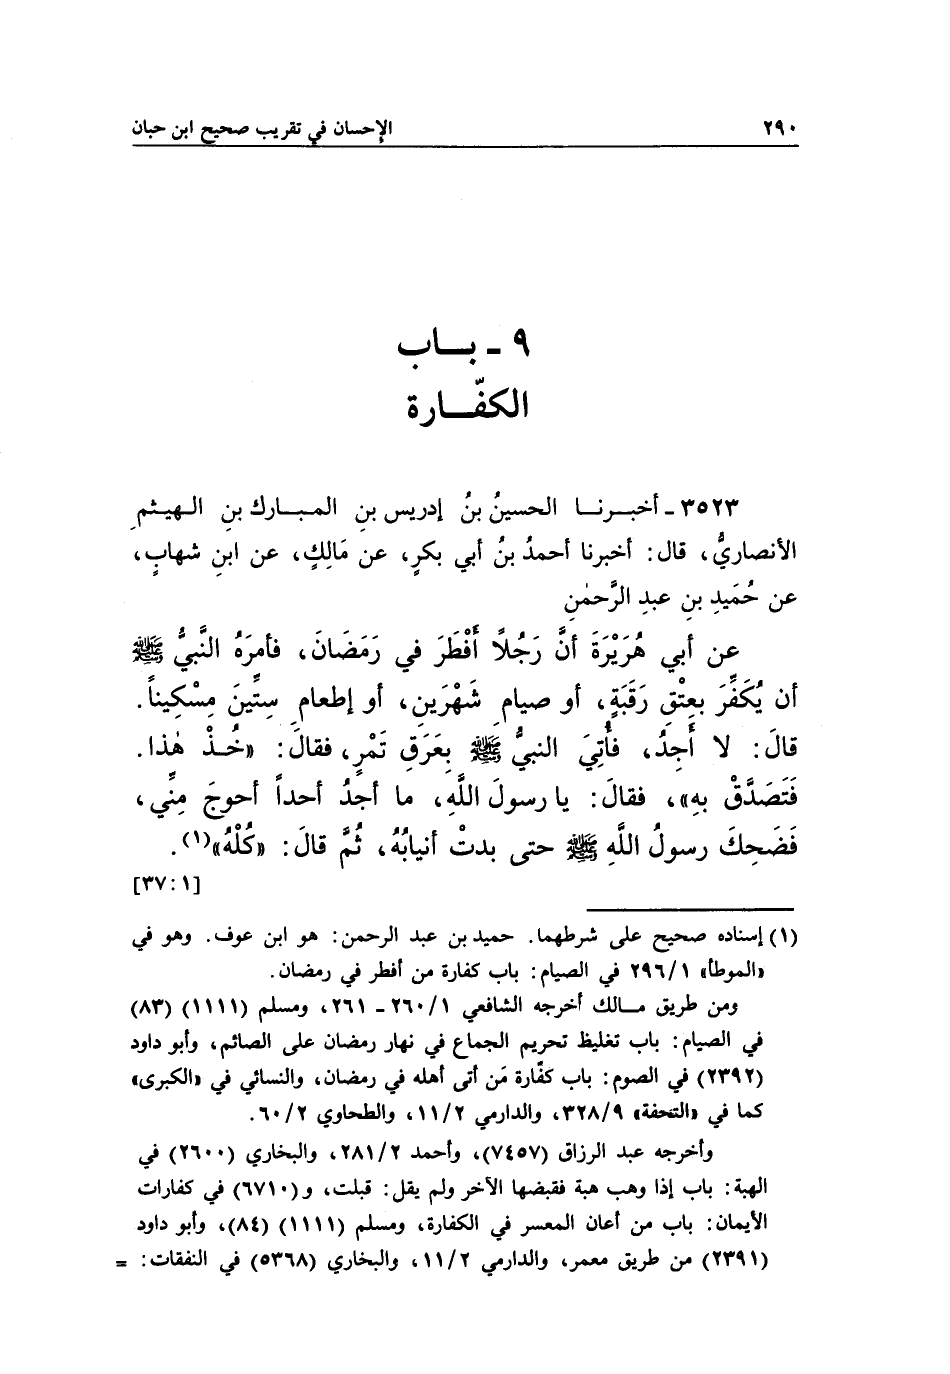 ٢٩٠ الإحسان في تقريب صحيح ابن حبان
٩ ـ بــاب
الكفّــارة
٣٥٢٣ ـ أخبــرنــا الحسينُ بنُ إدريس بنِ المبــارك بنِ الـهيـثمِ
الأنصاريُّ، قال: أخبرنا أحمدُ بنُ أبي بكرٍ، عن مَالِكٍ، عن ابنِ شهابٍ،
عن حُمَيدِ بنِ عبدِ الرَّحمٰنِ
عن أبي هُرَيْرَةَ أنَّ رَجُلاً أَفْطَرَ في رَمَضَانَ، فأمرَهُ النَّبيُّ ﷺ
أن يُكَفِّرَ بعِتْقِ رَقَبَةٍ، أو صيامِ شَهْرَينِ، أو إطعامِ سِتِّينَ مِسْكِيناً.
قالَ: لا أَجِدُ، فأُتِيَ النبيُّ ﷺ بعَرَقِ تَمْرٍ، فقالَ: «خُـذْ هٰذا.
فَتَصَدَّقْ بهِ»، فقالَ: يا رسولَ اللَّهِ، ما أجدُ أحداً أحوجَ مِنِّي،
فَضَحِكَ رسولُ اللَّهِ ﷺ حتى بدتْ أنيابُهُ، ثُمَّ قالَ: «كُلْهُ»(١).
[٣٧:١]
(١) إسناده صحيح على شرطهما. حميد بن عبد الرحمن: هو ابن عوف. وهو في
«الموطأ» ٢٩٦/١ في الصيام: باب كفارة من أفطر في رمضان.
ومن طريق مــالك أخرجه الشافعي ٢٦٠/١ ـ ٢٦١، ومسلم (١١١١) (٨٣)
في الصيام: باب تغليظ تحريم الجماع في نهار رمضان على الصائم، وأبو داود
(٢٣٩٢) في الصوم: باب كفّارة مَن أتى أهله في رمضان، والنسائي في «الكبرى»
كما في «التحفة» ٣٢٨/٩، والدارمي ١١/٢، والطحاوي ٦٠/٢.
وأخرجه عبد الرزاق (٧٤٥٧)، وأحمد ٢٨١/٢، والبخاري (٢٦٠٠) في
الهبة: باب إذا وهب هبة فقبضها الآخر ولم يقل: قبلت، و(٦٧١٠) في كفارات
الأيمان: باب من أعان المعسر في الكفارة، ومسلم (١١١١) (٨٤)، وأبو داود
(٢٣٩١) من طريق معمر، والدارمي ١١/٢، والبخاري (٥٣٦٨) في النفقات: =